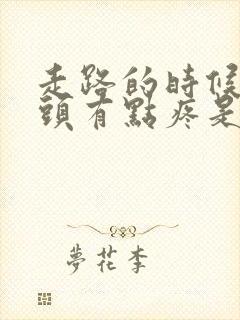 走路的時候
頭有點疼是
夢花李